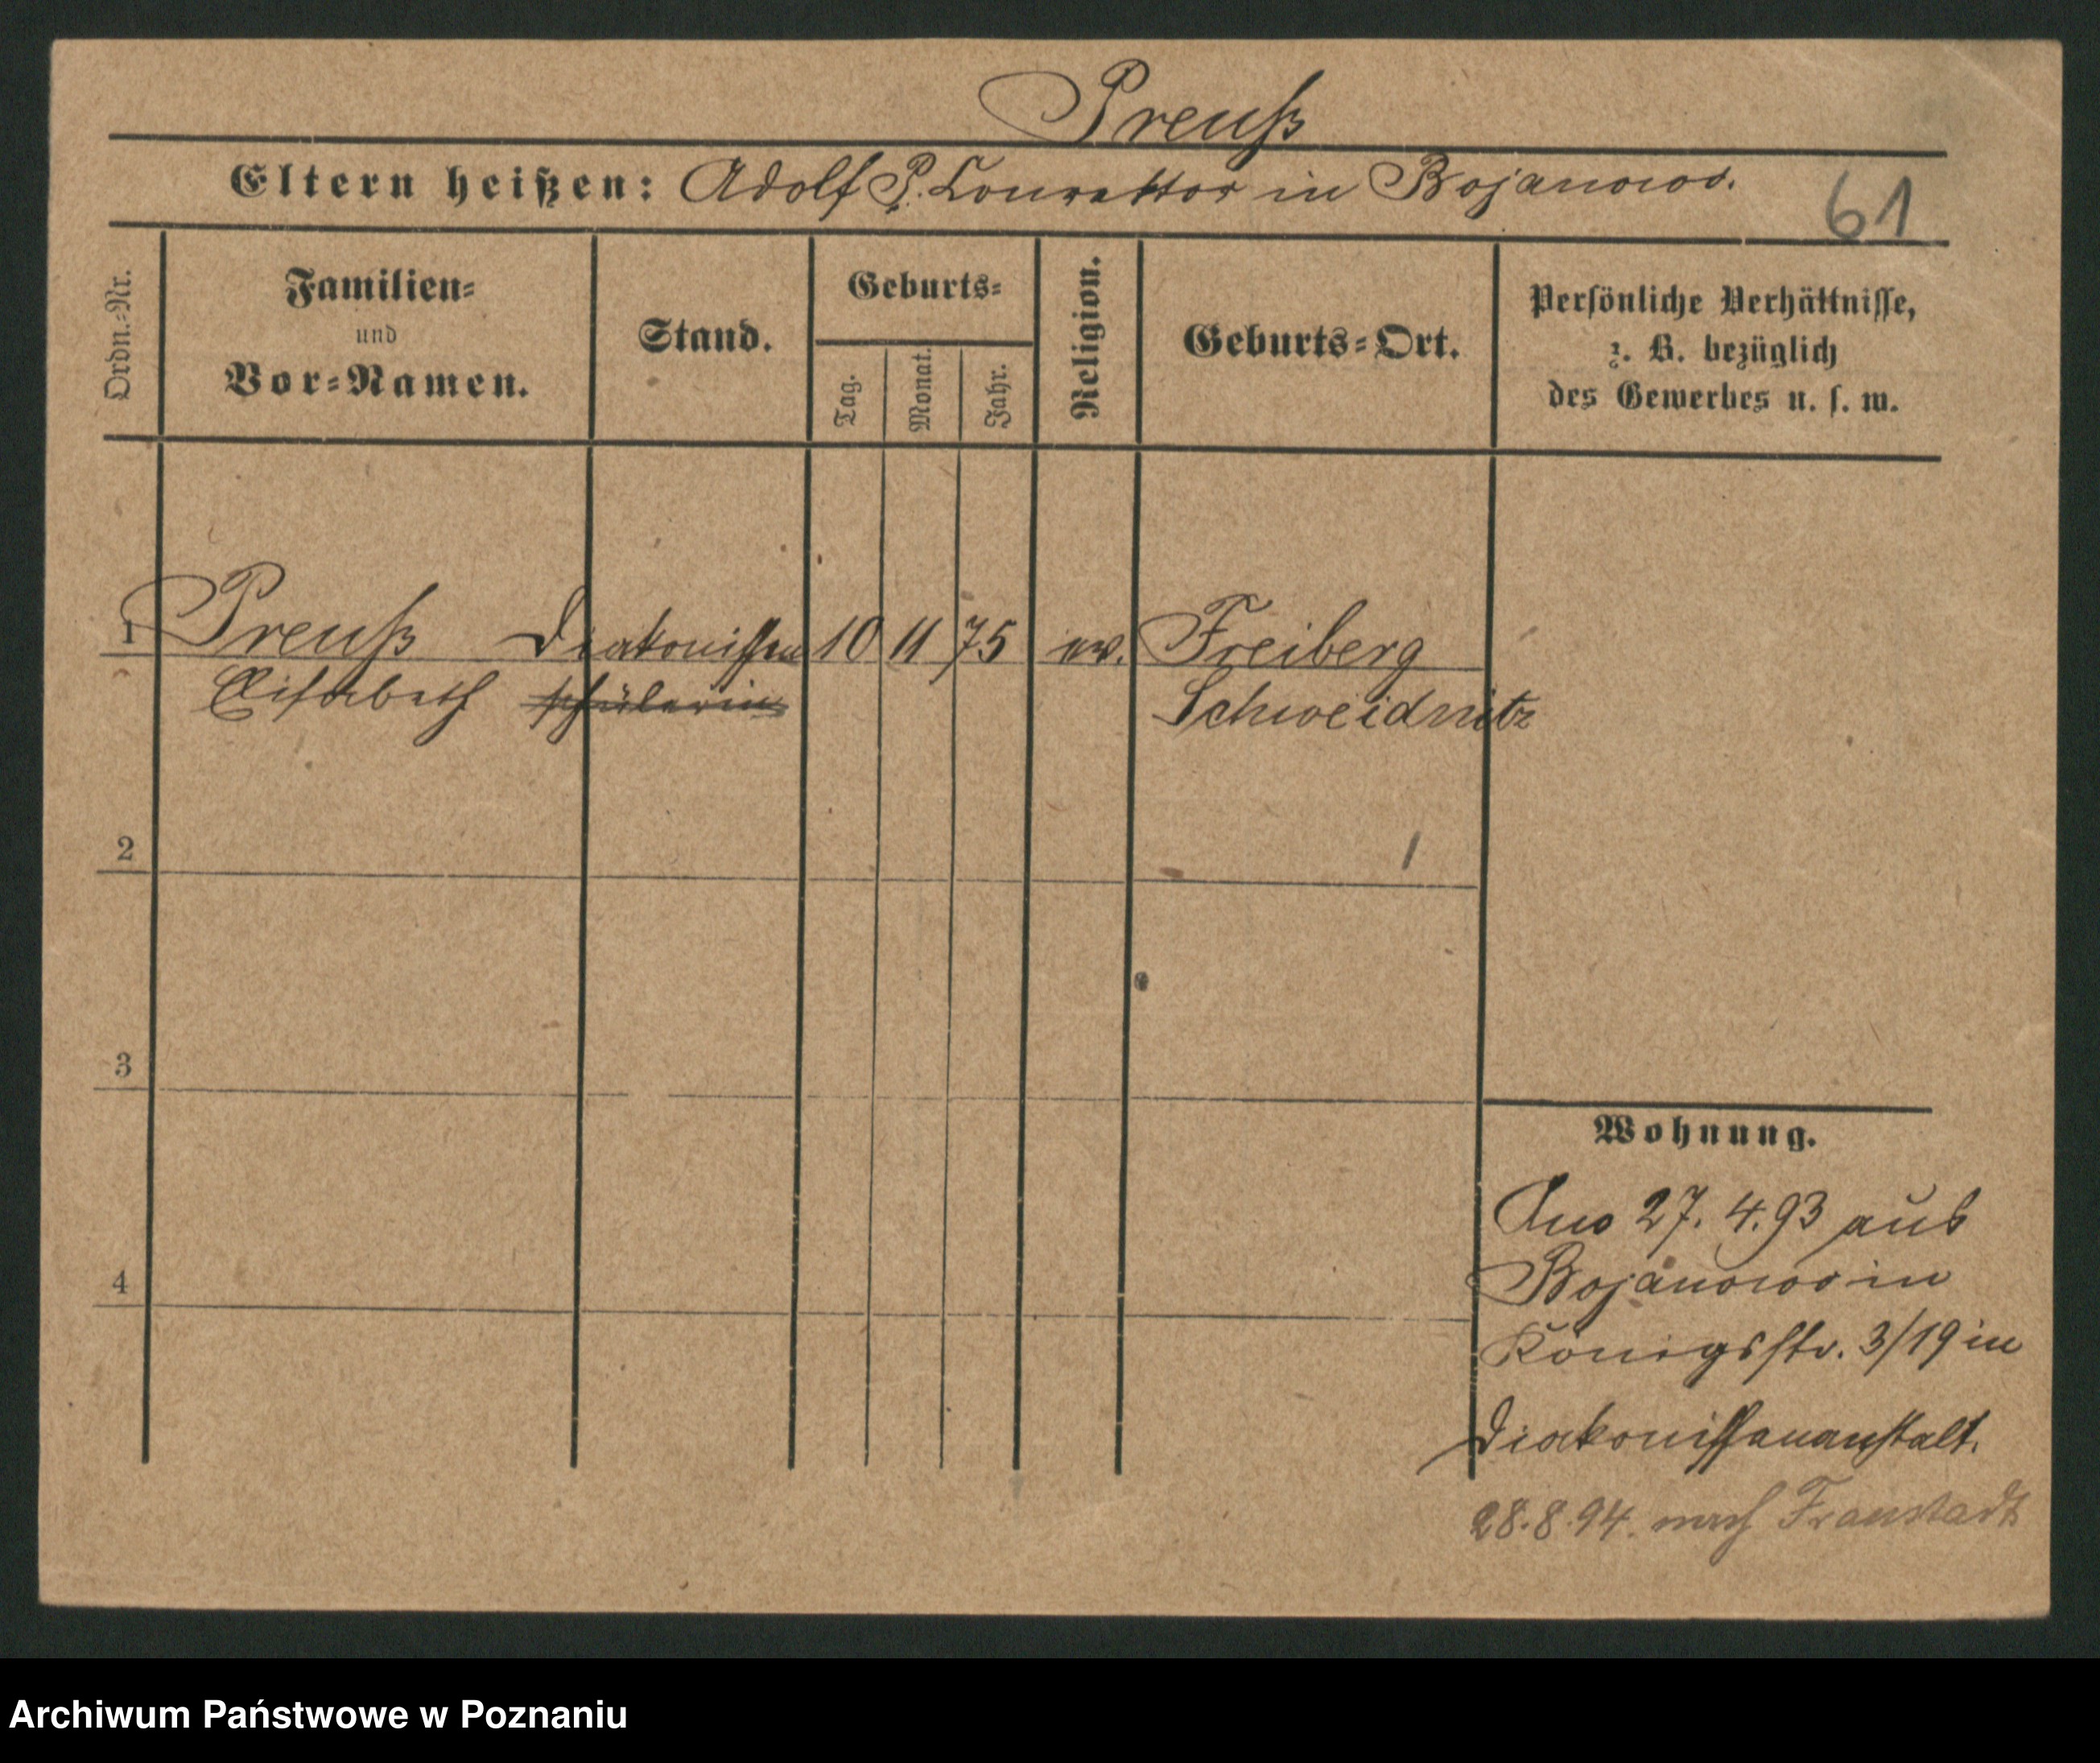 Preuß
Eltern heißen: Adolf P. Conrektor in Bojanowo.
61
Ordn.=Nr.
Familien=
und
Vor=Namen.
Stand.
Geburts=
Tag.
Monat.
Jahr.
Religion.
Geburts=Ort.
Persönliche Verhältnisse,
z. B. bezüglich
des Gewerbes u. s. w.
1 Preuß Diakonissen 10 11 75 ev. Freiberg
Elisabeth schülerin Schweidnitz
2
3
4
Wohnung.
27. 4. 93 aus
Bojanowo in
Königsstr. 3/19 in
Diakonissenanstalt.
28. 8. 94. nach Fraustadt
Archiwum Państwowe w Poznaniu